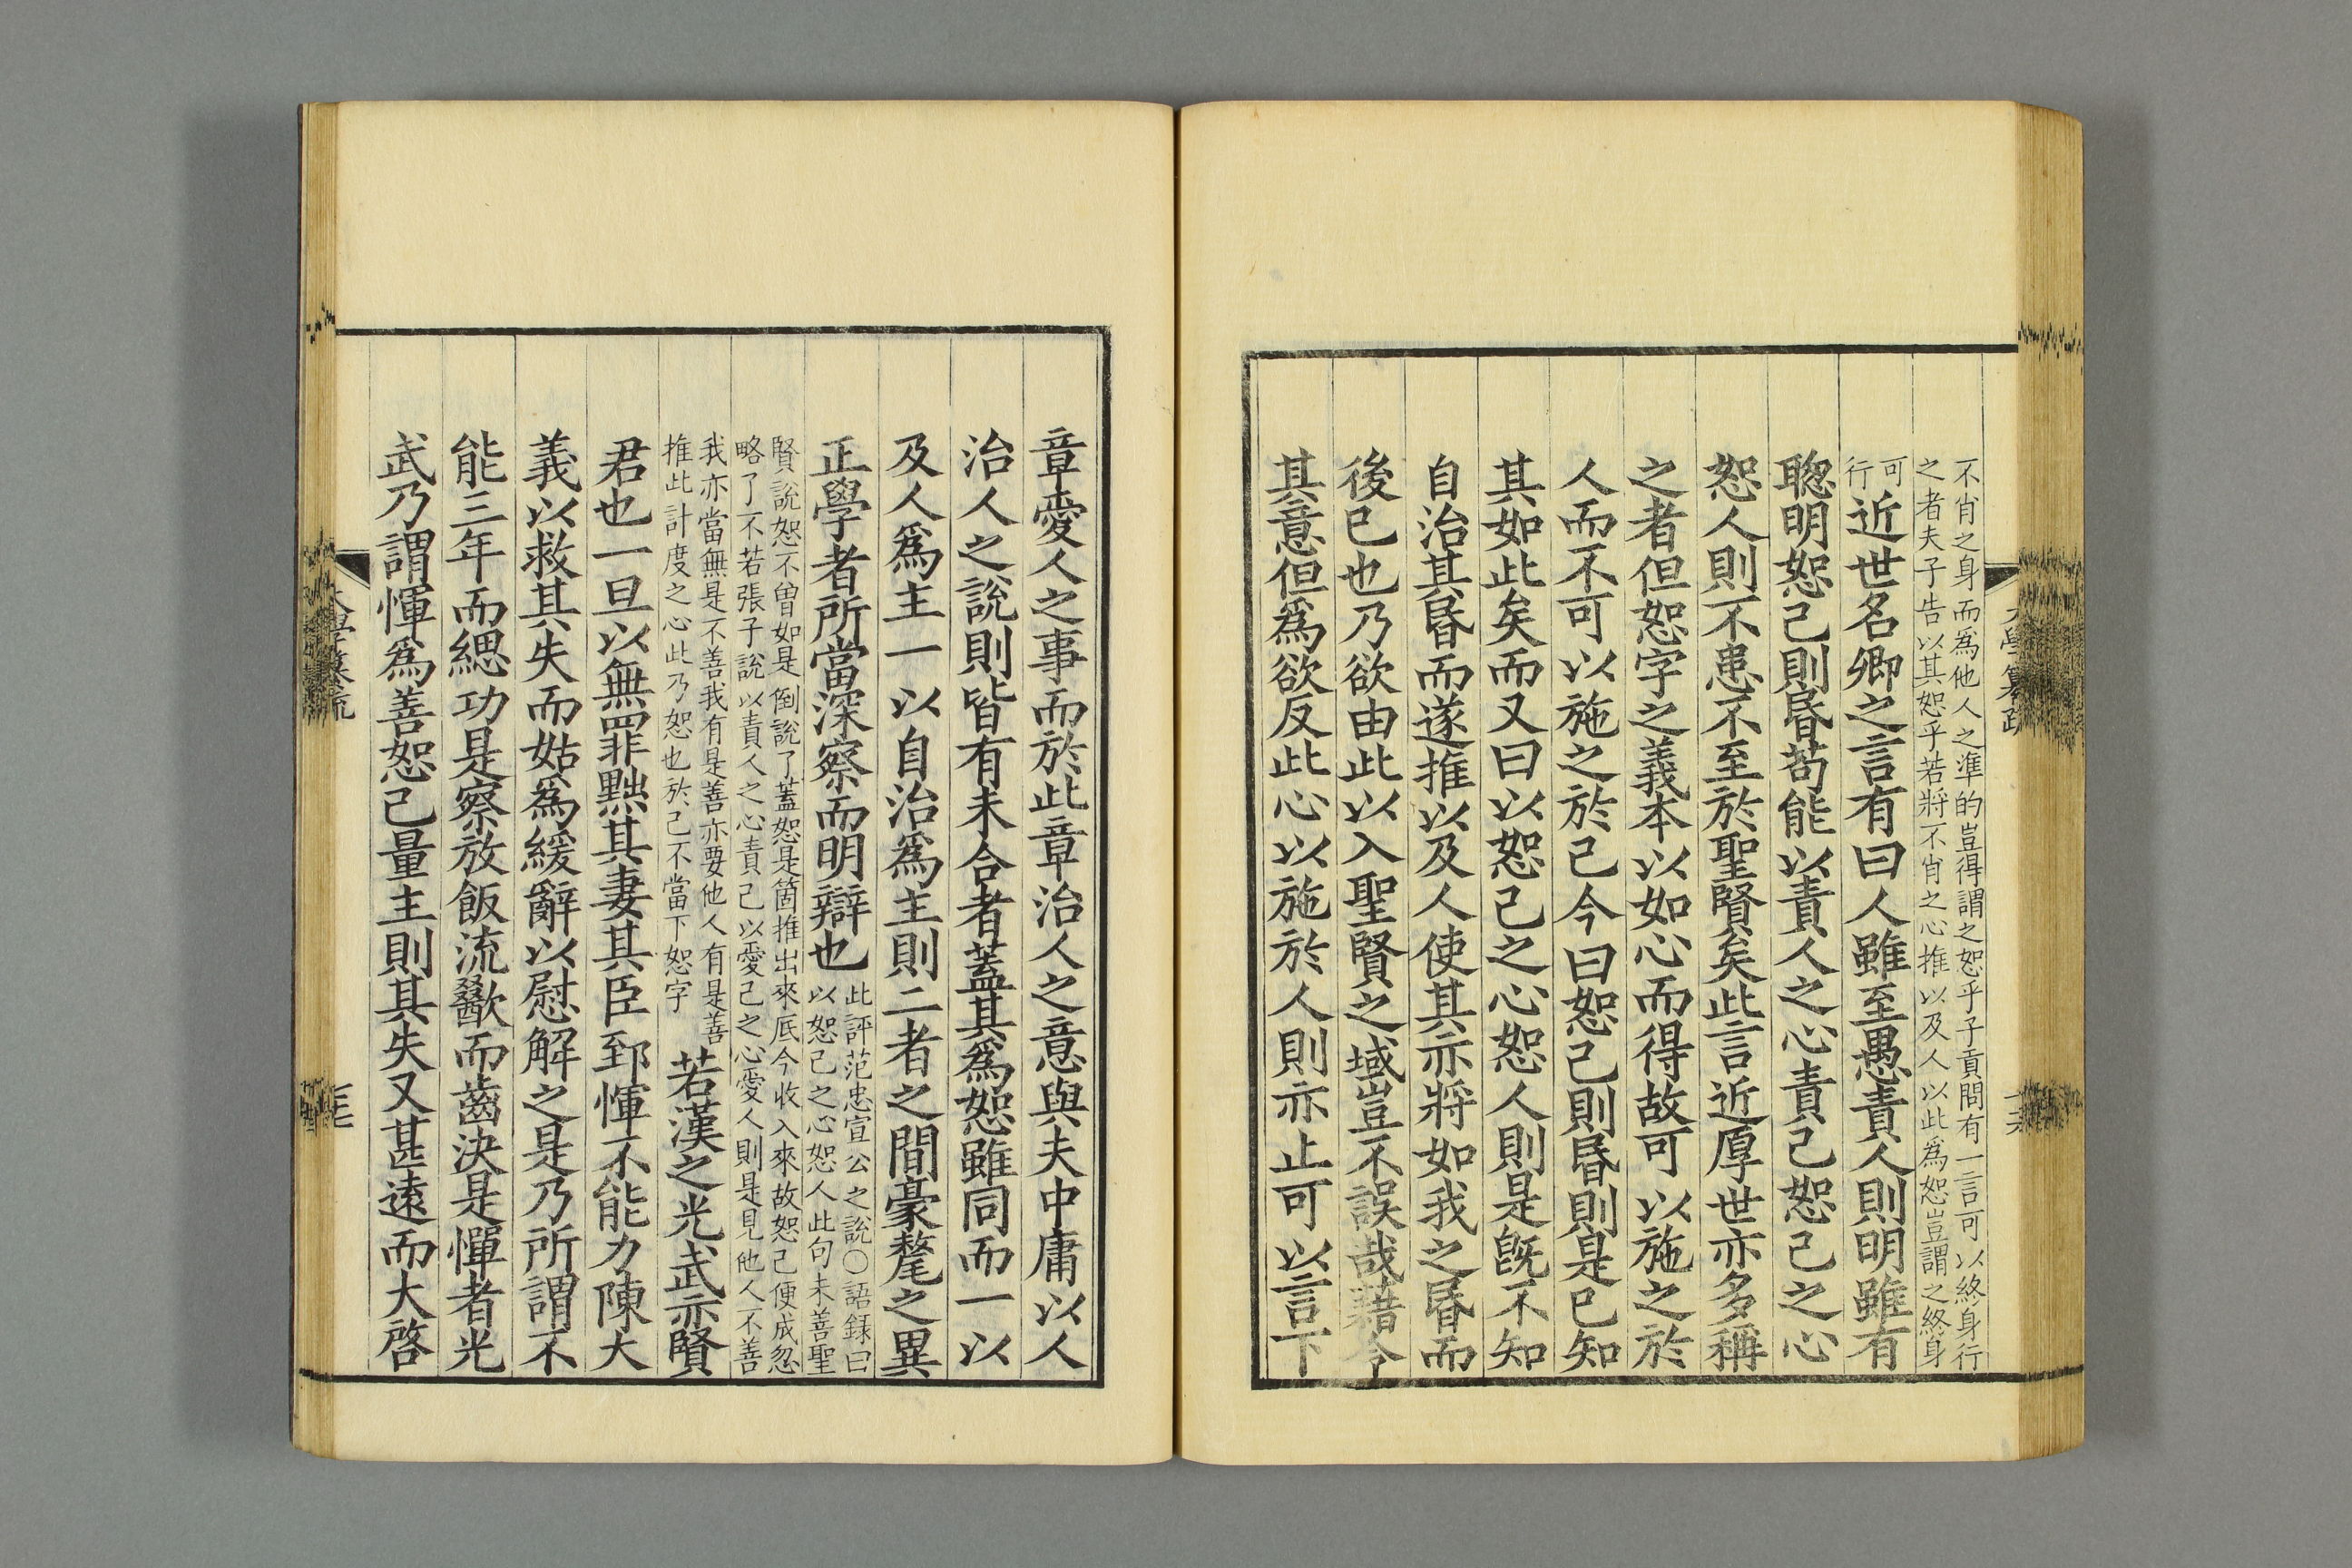 不肖之身而為他人之準的豈得謂之恕乎子貢問有一言可以終身行
之者夫子告以其恕乎若將不肖之心推以及人以此為恕豈謂之終身
可
行
近世名卿之言有曰人雖至愚責人則明雖有
聦明恕己則昬苟能以責人之心責己恕己之心
恕人則不患不至於聖賢矣此言近厚世亦多稱
之者但恕字之義本以如心而得故可以施之於
人而不可以施之於己今曰恕己則昬則是已知
其如此矣而又曰以恕己之心恕人則是旣不知
自治其昬而遂推以及人使其亦將如我之昬而
後已也乃欲由此以入聖賢之域豈不誤哉藉令
其意但爲欲反此心以施於人則亦止可以言下
大學纂疏
章愛人之事而於此章治人之意與夫中庸以人
治人之說則皆有未合者蓋其爲恕雖同而一以
及人爲主一以自治爲主則二者之間豪氂之異
正學者所當深察而明辯也
此評范忠宣公之說〇語録曰
以恕己之心恕人此句未善聖
賢說恕不曽如是倒說了蓋恕是箇推出來底今收入來故恕己便成忽
略了不若張子說以責人之心責己以愛己之心愛人則是見他人不善
我亦當無是不善我有是善亦要他人有是善
推此計度之心此乃恕也於己不當下恕字
若漢之光武亦賢
君也一旦以無罪黜其妻其臣郅惲不能力陳大
義以救其失而姑爲緩辭以慰解之是乃所謂不
能三年而緦功是察放飯流歠而齒決是憚者光
武乃謂惲爲善恕己量主則其失又甚遠而大啓